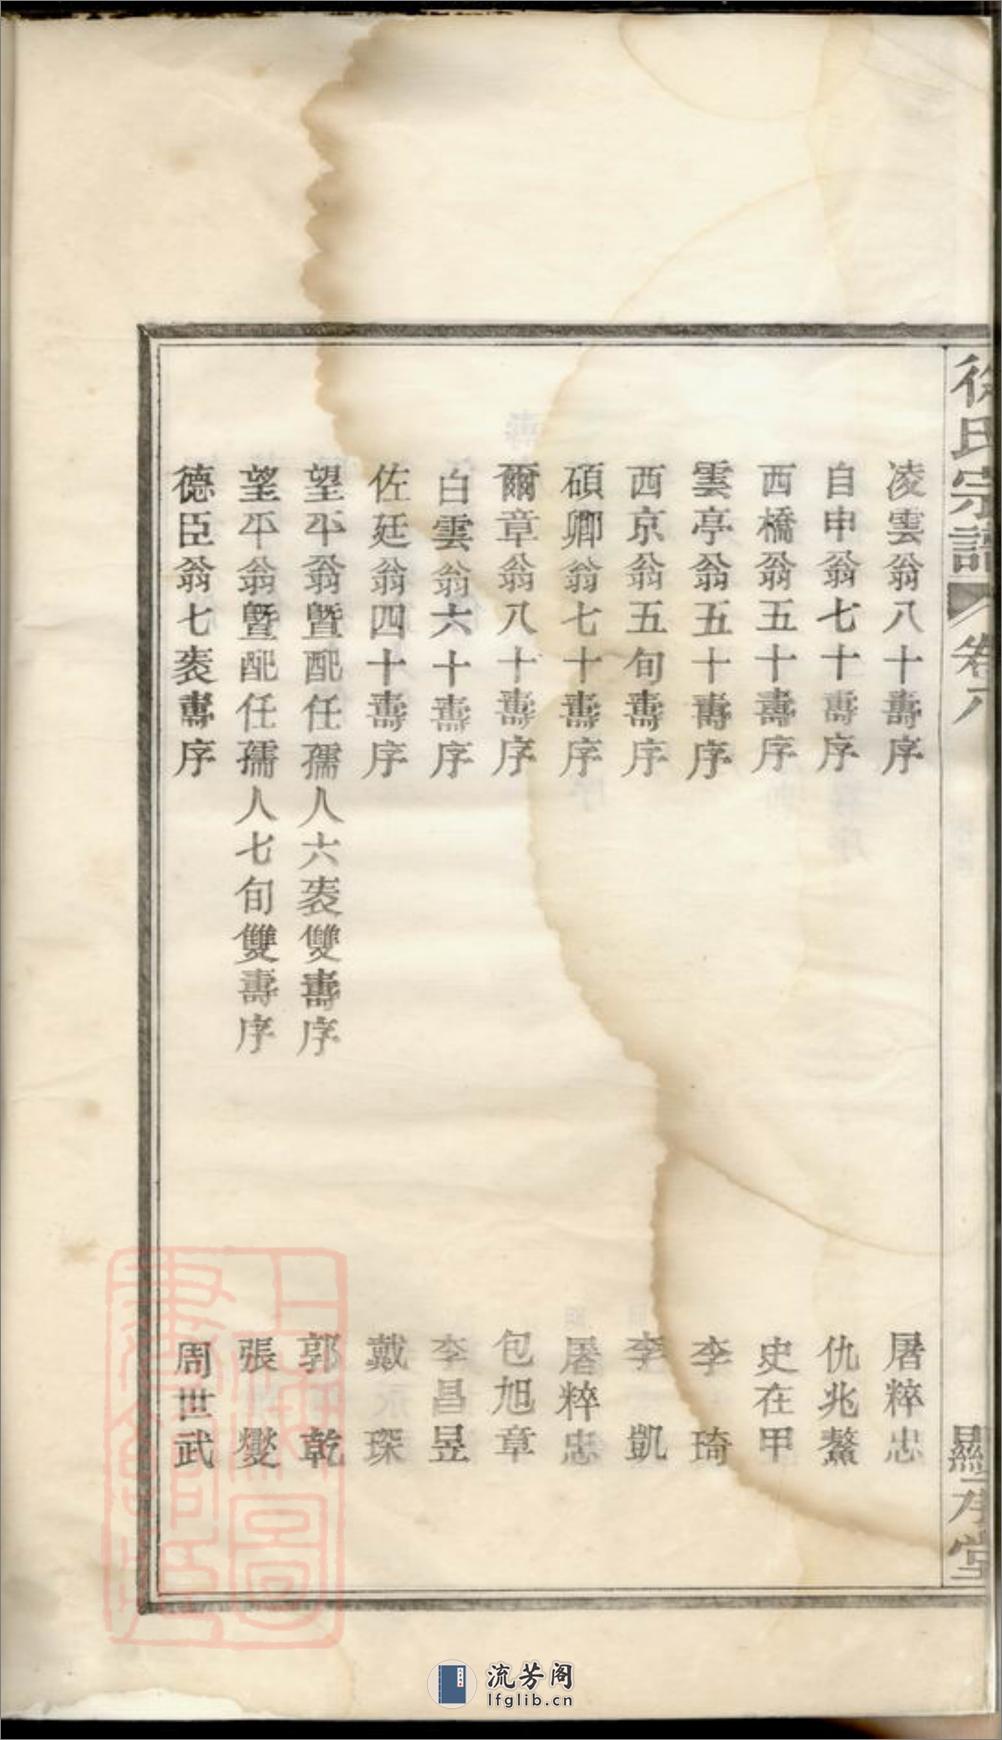 徐氏宗譜 卷八
凌雲翁八十壽序 屠粹忠
自申翁七十壽序 仇兆鰲
西橋翁五十壽序 史在甲
雲亭翁五十壽序 李琦
西京翁五旬壽序 李凱
碩卿翁七十壽序 屠粹忠
爾章翁八十壽序 包旭章
白雲翁六十壽序 李昌昱
佐廷翁四十壽序 戴永琛
望平翁暨配任孺人六袠雙壽序 郭乾
望平翁暨配任孺人七旬雙壽序 張燮
德臣翁七袠壽序 周世武
堂
上海圖書館藏
流芳阁
lfglib.cn